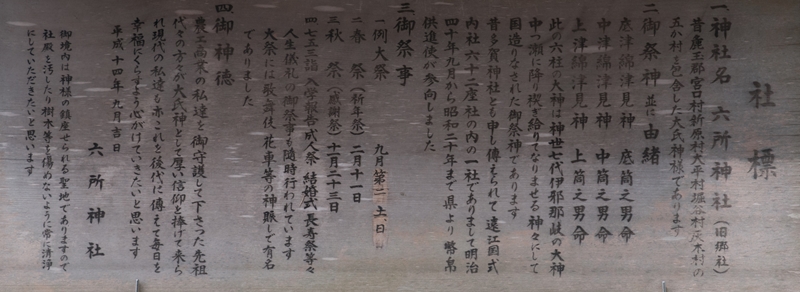 社標
一 神社名 六所神社（旧郷社）
昔麁玉郡宮口村新原村大平村堀谷村灰木村の
五か村を包含した大氏神様であります
二 御祭神 並に 由緒
底津綿津見神 底筒之男命
中津綿津見神 中筒之男命
上津綿津見神 上筒之男命
此の六柱の大神は神世七代伊邪那岐の大神
中つ瀬に降り禊き給ひてなりませる神々にして
国造りなされた御祭神であります
昔多賀神社とも申し傳えられて遠江国式
内社六十二座社の内の一社でありまして明治
四十年九月から昭和二十年まで県より幣帛
供進使が参向しました
三 御祭事
一 例大祭 九月第二土、日
二 春祭（祈年祭）二月十一日
三 秋祭（感謝祭）十一月二十三日
四 七五三詣 入学報告 成人祭 結婚式 長寿祭等々
人生儀礼の御祭事も随時行われています
大祭には歌舞伎、花車等の神賑しで有名
でありました
四 御神徳
農工商業の私達を御守護して下さった先祖
代々の方々が大氏神として厚い信仰を捧げて来ら
れ現代の私達も亦これを後代に傳えて毎日を
幸福にくらすよう心がけていきたいと思います
平成十四年九月吉日
六所神社
御境内は神様の鎮座せられる聖地でありますので
社殿を汚したり樹木等を傷めないように常に清浄
にしていただきたいと思います